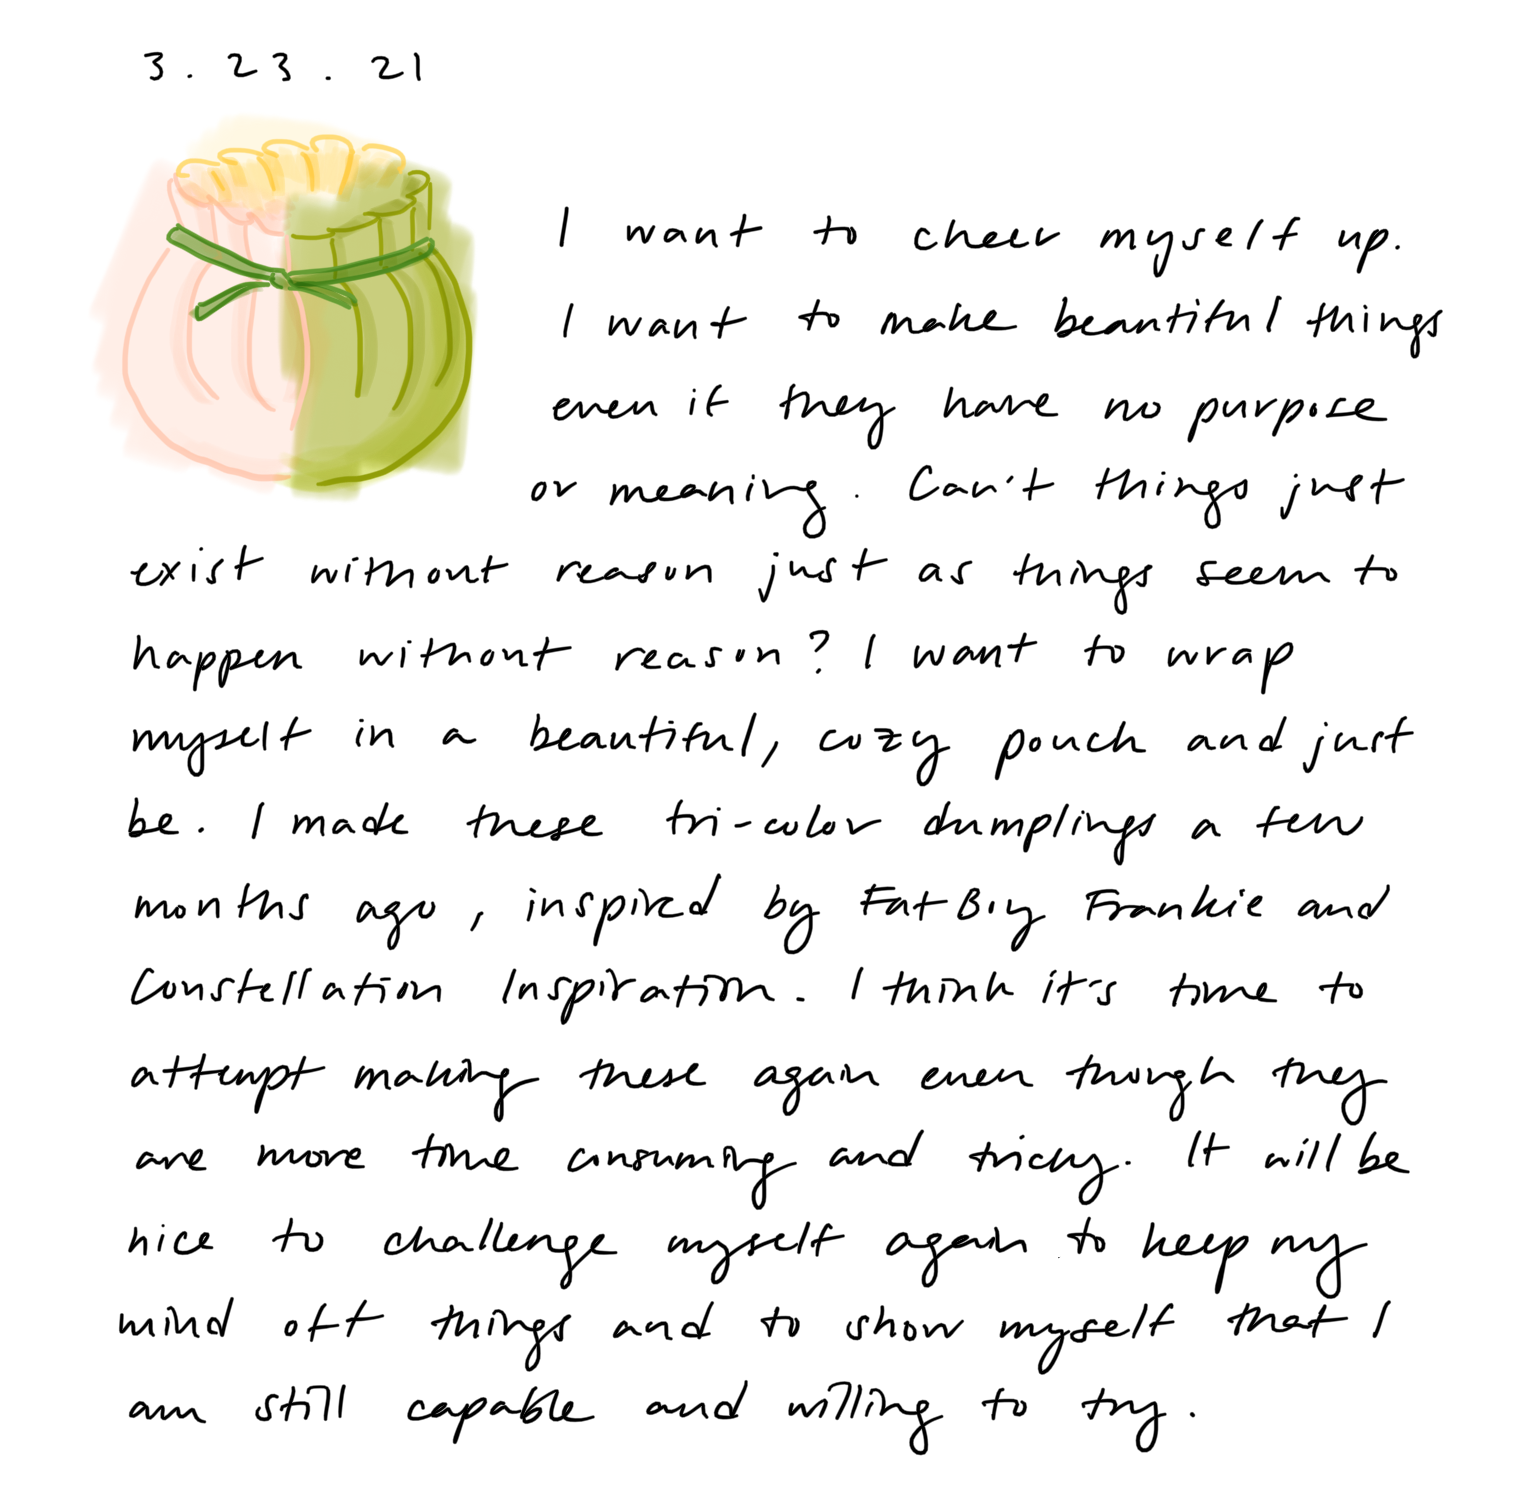 3.23.21
I want to cheer myself up.
I want to make beautiful things
even if they have no purpose
or meaning. Can't things just
exist without reason just as things seem to
happen without reason? I want to wrap
myself in a beautiful, cozy pouch and just
be. I made these tri-color dumplings a few
months ago, inspired by Fat Boy Frankie and
Constellation Inspiration. I think it's time to
attempt making these again even though they
are more time consuming and tricky. It will be
nice to challenge myself again to keep my
mind off things and to show myself that I
am still capable and willing to try.